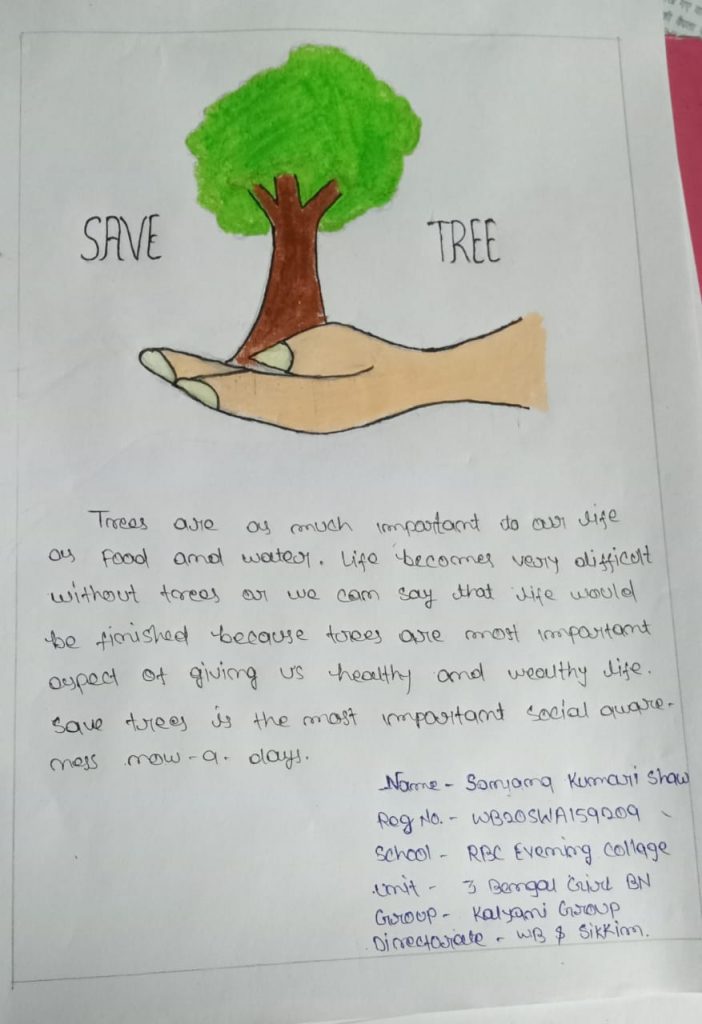 SAVE TREE
Trees are as much important do our life
as food and water. Life becomes very difficult
without trees or we can say that life would
be finished because trees are most important
aspect of giving us healthy and wealthy life.
Save trees is the most important social aware-
ness now-a-days.
Name - Sanjana Kumari Shaw
Reg No. - WB20SWA159209
School - RBC Evening Collage
Unit - 3 Bengal Girl BN
Group - Kalyani Group
Directorate - WB & Sikkim.